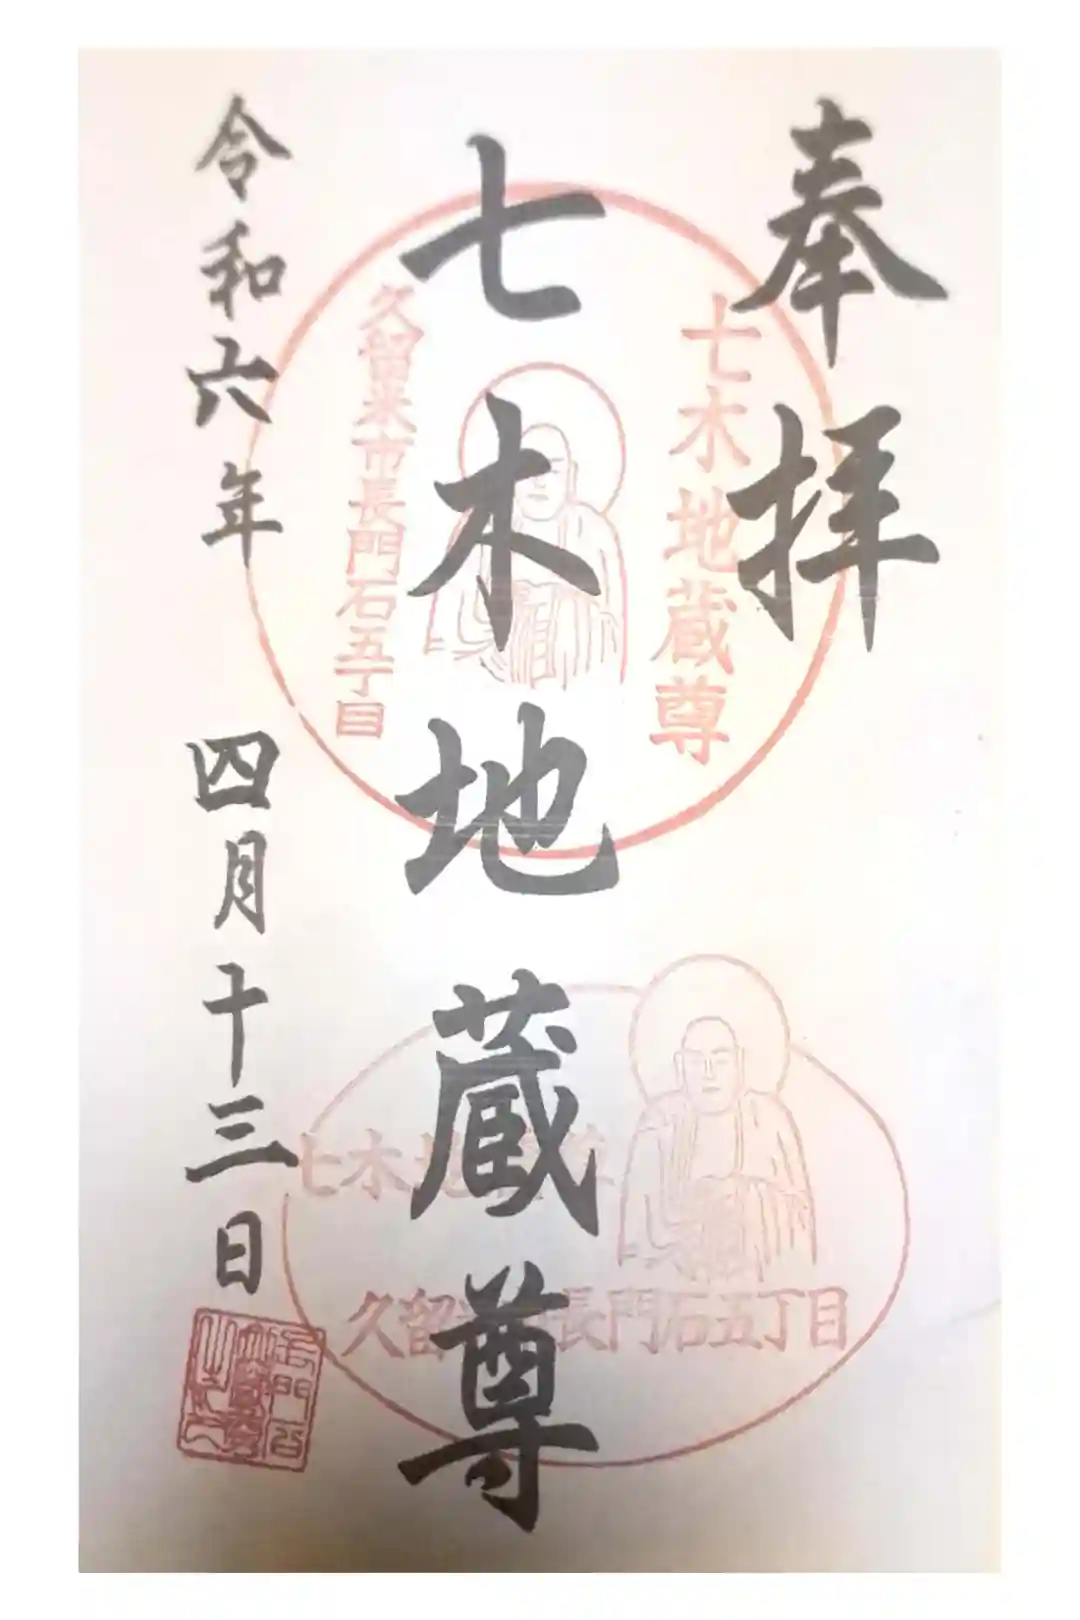 奉拝
七木地蔵尊
令和六年 四月十三日
七木地蔵尊
久留米市長門石五丁目
七木地
久留 長門石五丁目